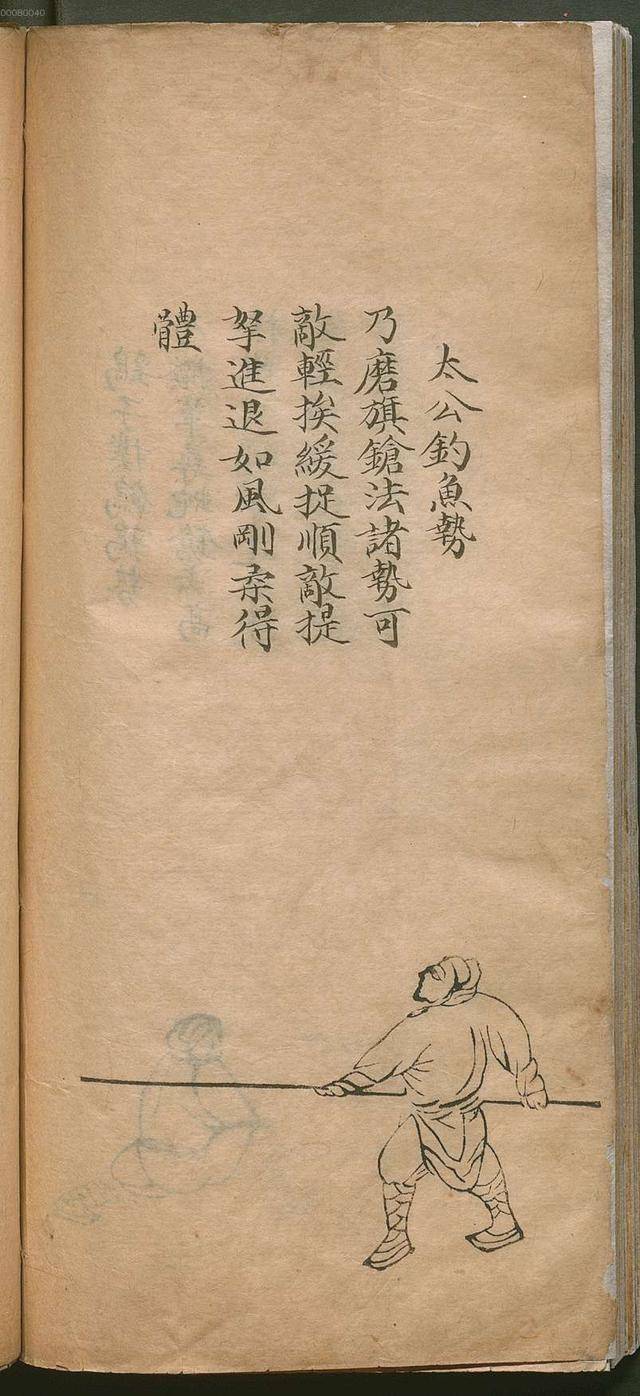 00080040
太公釣魚勢
乃磨旗鎗法諸勢可
敵輕挨緩捉順敵提
拏進退如風剛柔得
體